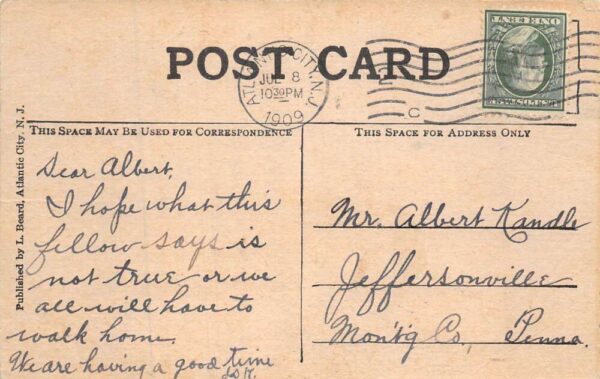 POST CARD
ATLANTIC CITY, N.J.
JUL 8
10 30 PM
1909
2
C
THIS SPACE MAY BE USED FOR CORRESPONDENCE
THIS SPACE FOR ADDRESS ONLY
Published by L. Beard, Atlantic City, N. J.
Dear Albert,
I hope what this
fellow says is
not true or we
all will have to
walk home.
We are having a good time
Mr. Albert Kandle
Jeffersonville
Montg Co., Penna.